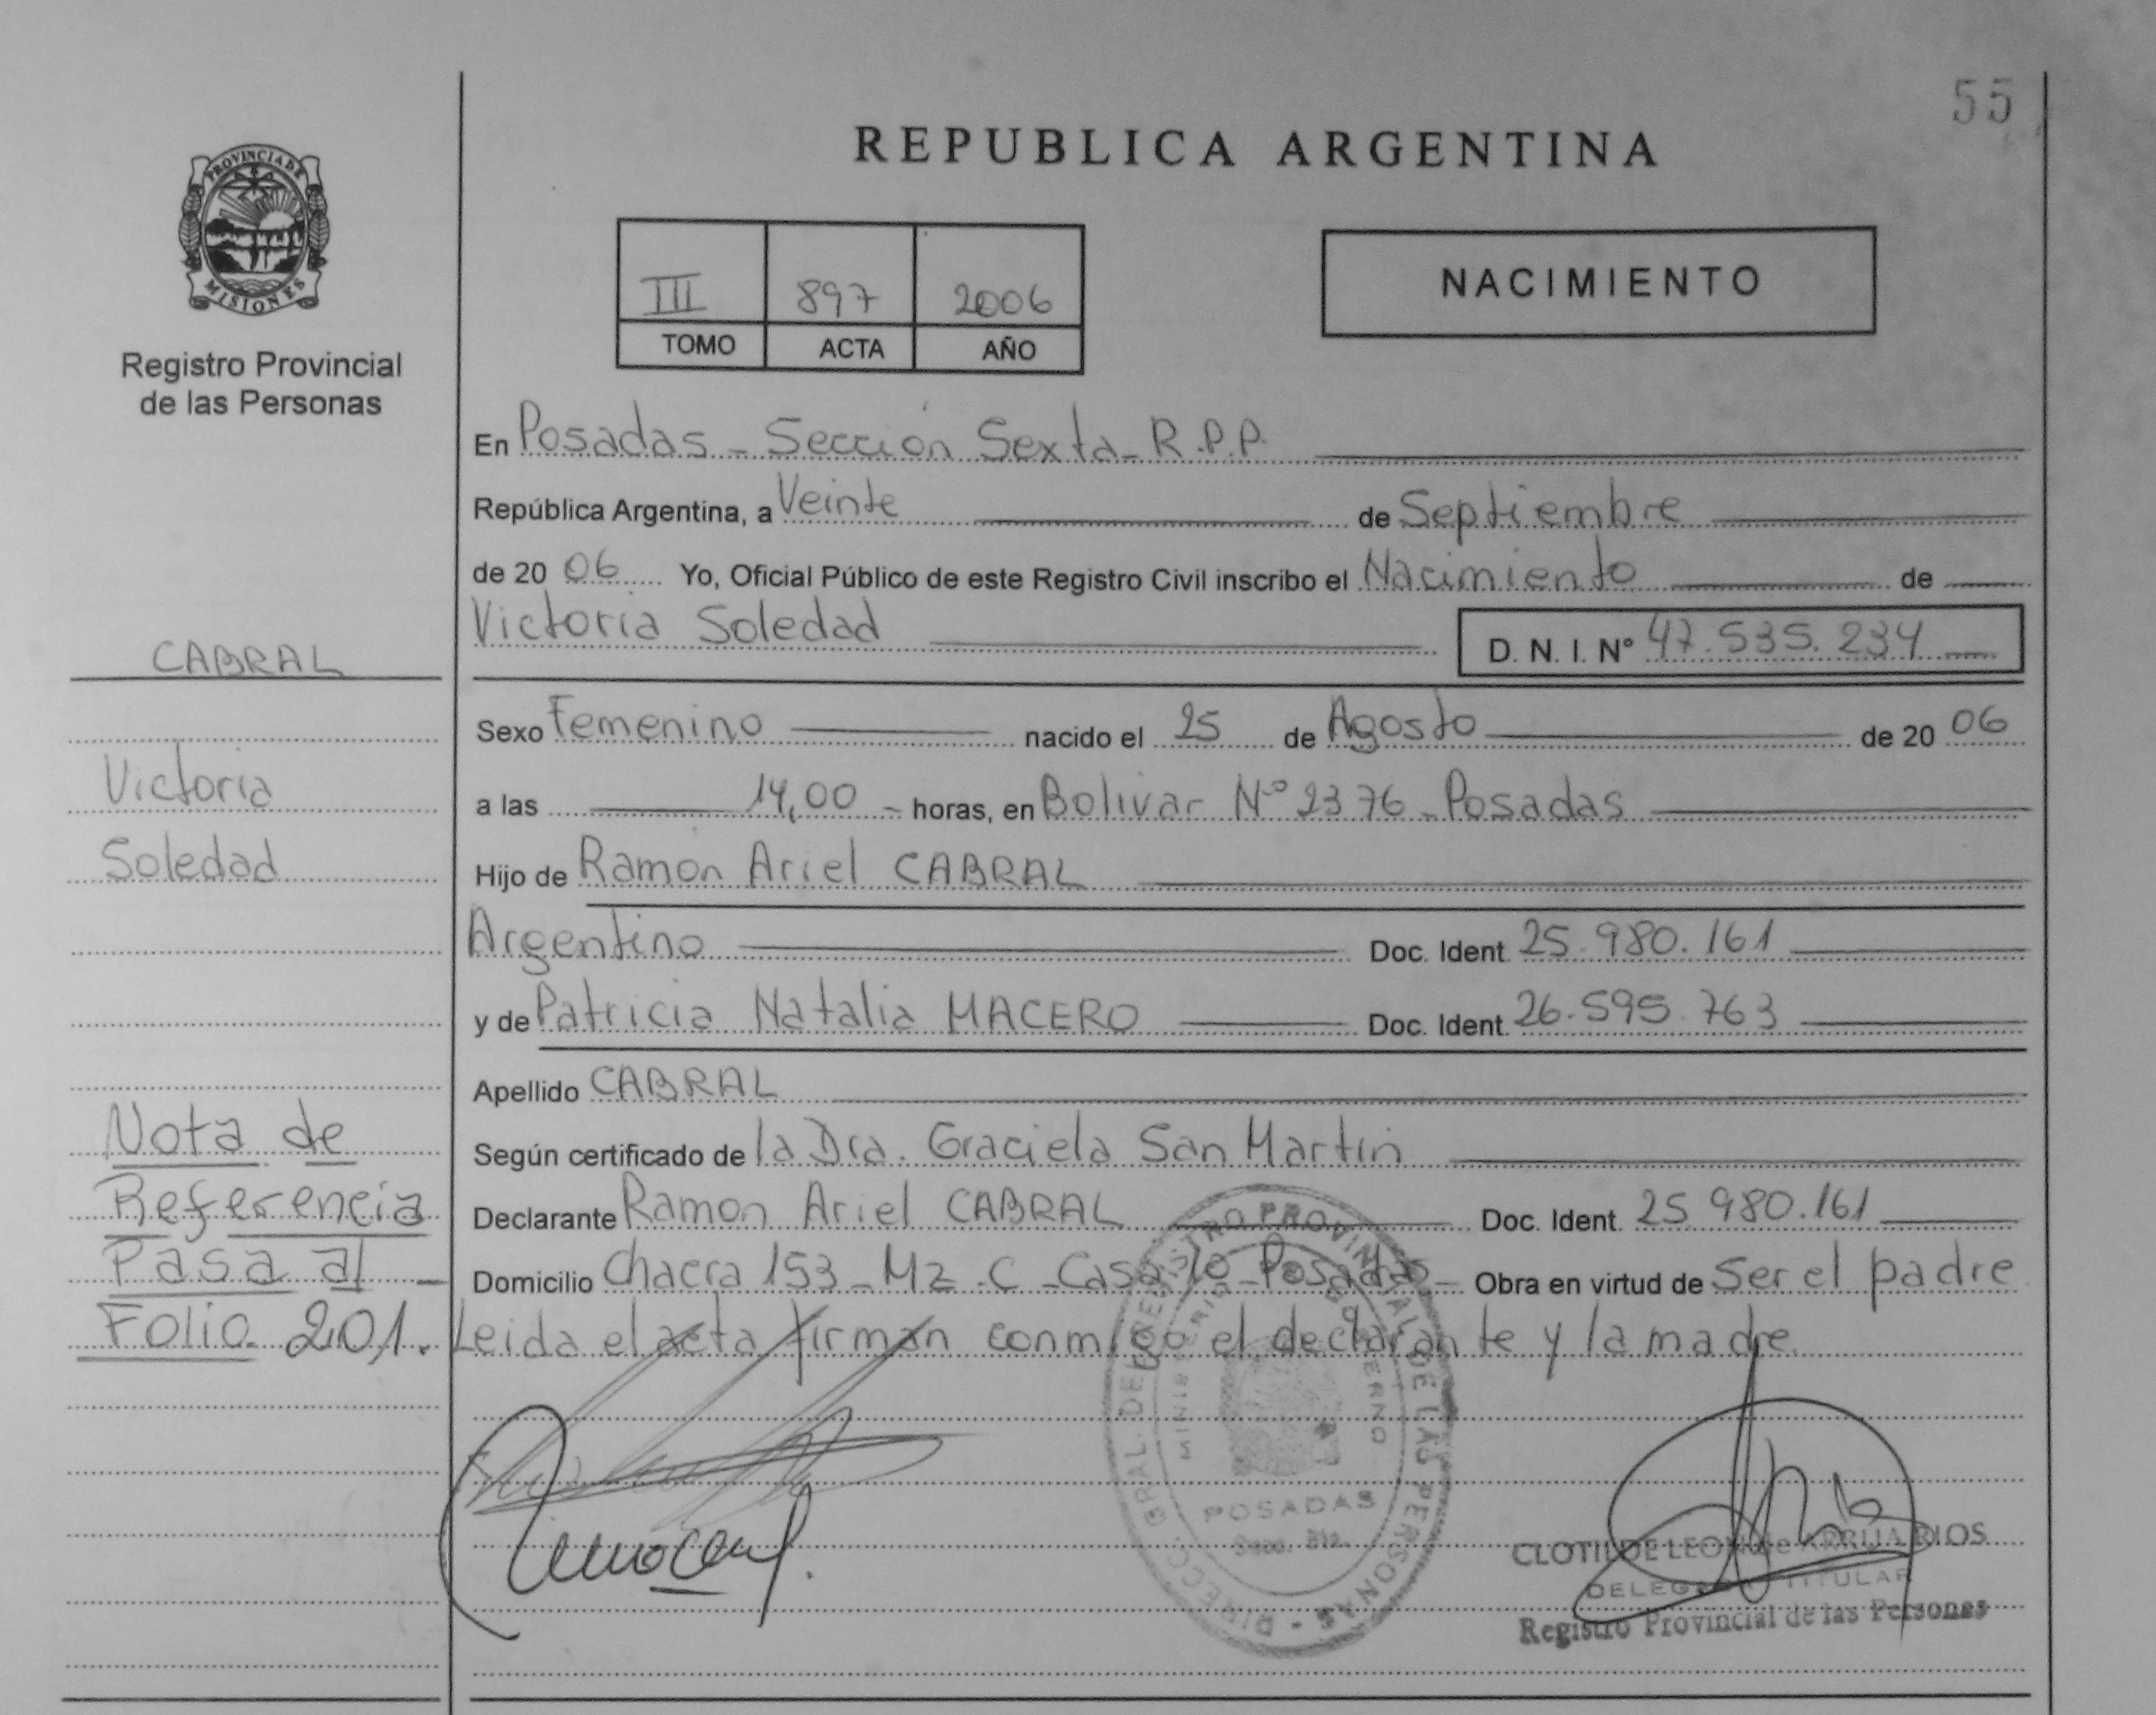 55
REPUBLICA ARGENTINA
PROVINCIA DE
MISIONES
Registro Provincial
de las Personas
III 897 2006
TOMO ACTA AÑO
NACIMIENTO
En Posadas - Sección Sexta - R.P.P.
República Argentina, a Veinte de Septiembre
de 20 06 Yo, Oficial Público de este Registro Civil inscribo el Nacimiento de
Victoria Soledad D. N. I. Nº 47.535.234
CABRAL
Victoria
Soledad
Sexo Femenino nacido el 25 de Agosto de 20 06
a las 14,00 - horas, en Bolivar Nº 2376 - Posadas
Hijo de Ramon Ariel CABRAL
Argentino Doc. Ident. 25.980.161
y de Patricia Natalia MACERO Doc. Ident. 26.595.763
Apellido CABRAL
Según certificado de la Dra. Graciela San Martin
Declarante Ramon Ariel CABRAL Doc. Ident. 25.980.161
Domicilio Chacra 153 - Mz - C - Casa 10 - Posadas - Obra en virtud de Ser el padre
Leida el acta firman conmigo el declarante y la madre.
Nota de
Referencia
Pasa al -
Folio 201.
DIRECC. GRAL. DEL REGISTRO PROVINCIAL DE LAS PERSONAS
MINISTERIO DE GOBIERNO
POSADAS
CLOTILDE LEON de ARRUA RIOS
DELEGADA TITULAR
Registro Provincial de las Personas